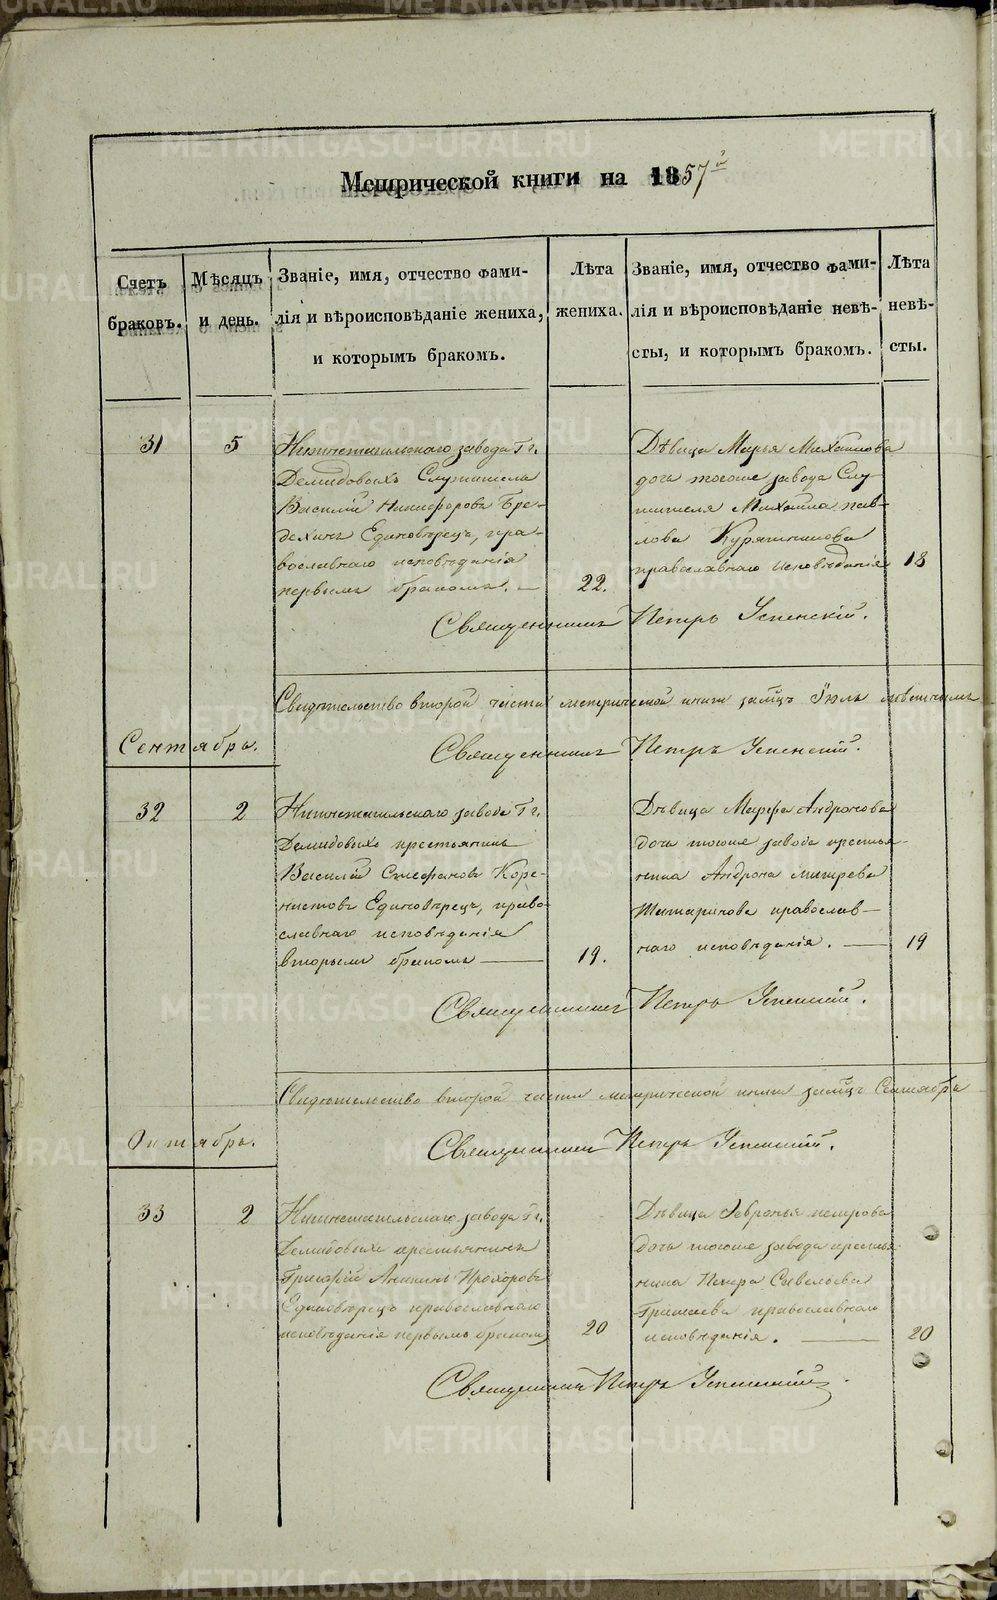 Метрической книги на 1857й
Счетъ браковъ.
Мѣсяцъ и день.
Званіе, имя, отчество фами-
лія и вѣроисповѣданіе жениха,
и которымъ бракомъ.
Лѣта
жениха.
Званіе, имя, отчество фами-
лія и вѣроисповѣданіе невѣ-
сты, и которымъ бракомъ.
Лѣта
невѣ-
сты.
31
5
Нижнетагильскаго завода Гг.
Демидовыхъ Служитель
Василій Никифоровъ Бре-
дихинъ Единовѣрецъ, пра-
вославнаго исповѣданія
первымъ бракомъ. —
22.
Дѣвица Марья Михаилова
дочь тогоже завода Слу
жителя Михаила Пав-
лова
православнаго исповѣданія
18
Священникъ Петръ Успенскій.
Свидѣтельство второй части метрической книги за мцъ Іюль
Священникъ Петръ Успенскій.
Сентябрь.
32
2
Нижнетагильскаго завода Гг.
Демидовыхъ крестьянинъ
Василій Стефановъ Коре-
нистовъ Единовѣрецъ, право
славнаго исповѣданія
вторымъ бракомъ —
19.
Дѣвица Марфа Андронова
дочь тогоже завода крестья-
нина Андрона
православ-
наго исповѣданія. —
19
Священникъ Петръ Успенскій.
Свидѣтельство второй части метрической книги за мцъ Сентябрь
Священникъ Петръ Успенскій.
Октябрь.
33
2
Нижнетагильскаго завода Гг.
Демидовыхъ крестьянинъ
Григорій Прохоровъ
Единовѣрецъ православнаго
исповѣданія первымъ бракомъ
20
Дѣвица Февронья Петрова
дочь тогоже завода крестья
нина Петра Савельева
православнаго
исповѣданія. —
20
Священникъ Петръ Успенскій.
METRIKI.GASO-URAL.RU